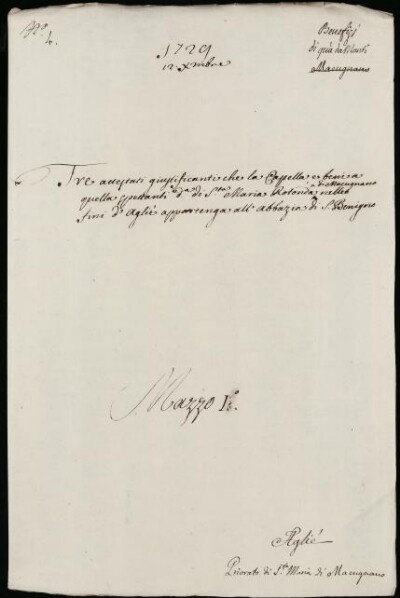 N.º 4.
Benefizj
di quà da Monti
Macugnano
1729
12 Xmbre
Tre attestati giustificanti che la Cappella e beni a
quella spettanti d.ª di S.ta Maria Rotonda di Macugnano nelle
fini d'Agliè appartenga all'Abbazia di S. Benigno
Mazzo I.º
Agliè
Priorato di S.ta Maria di Macugnano